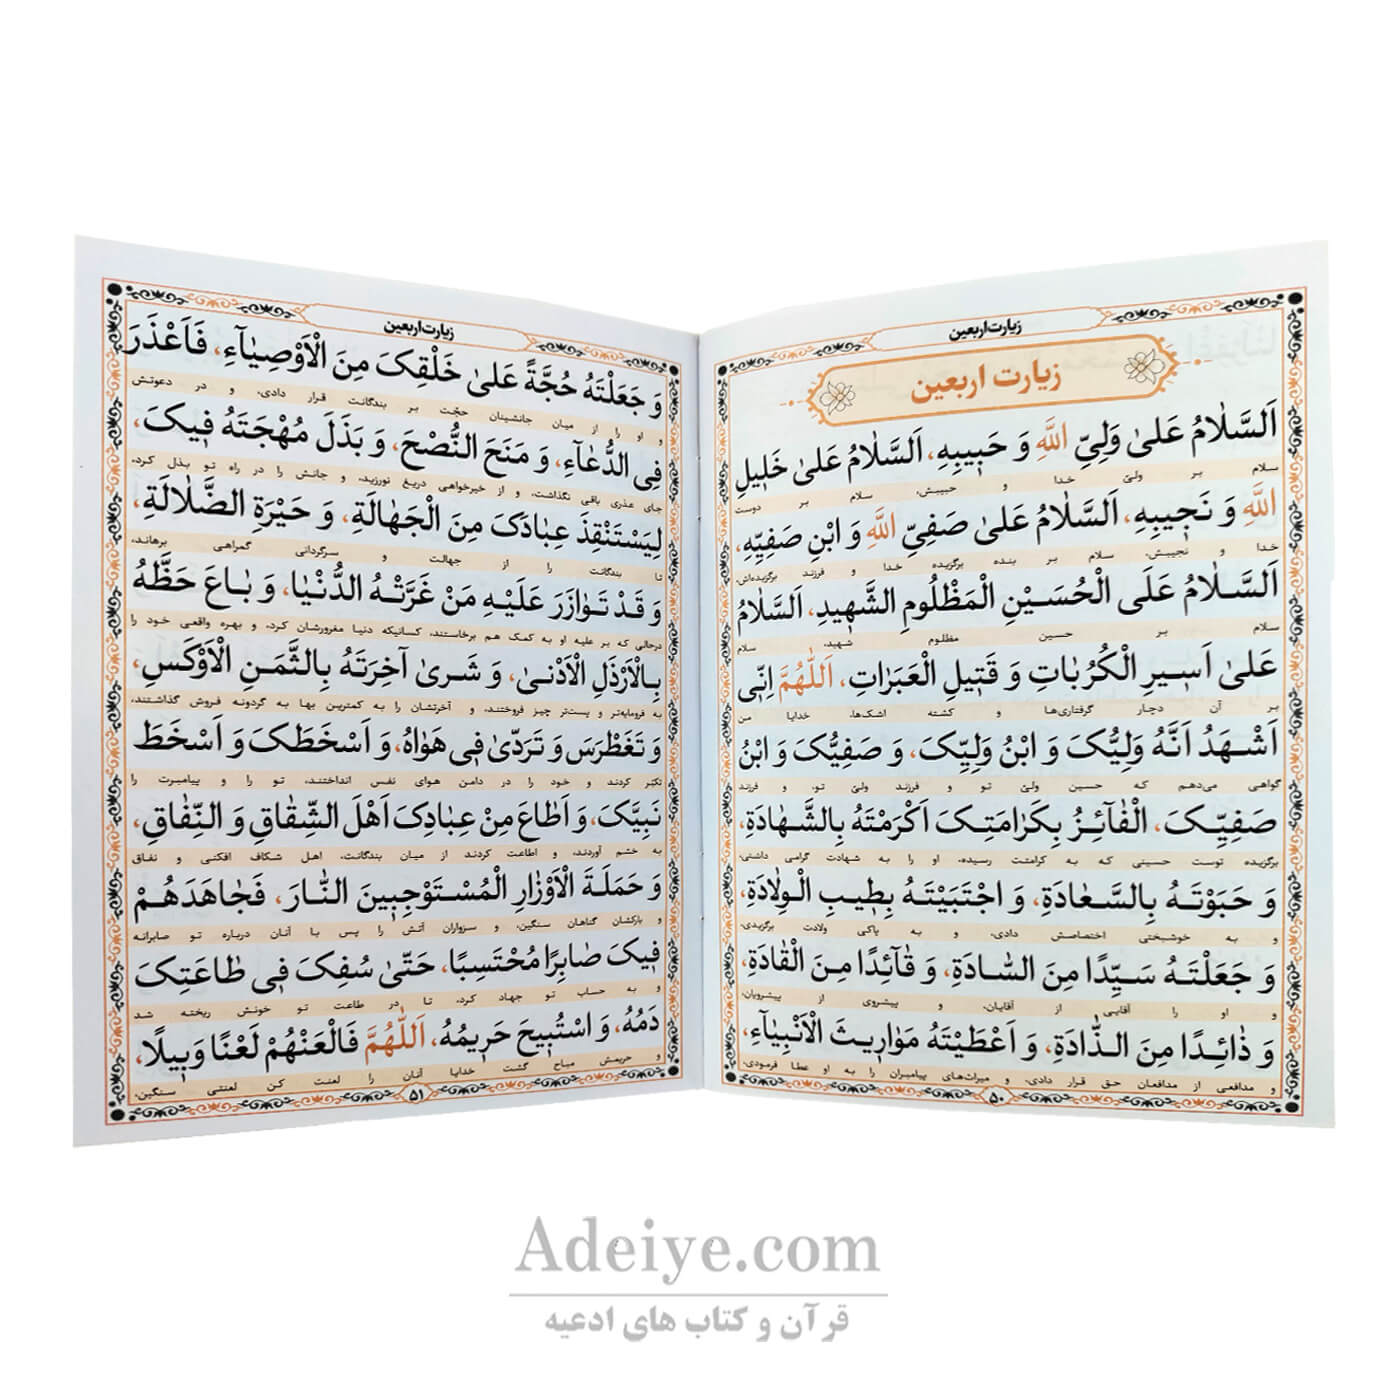 زیارت اربعین
زیارت اربعین
اَلسَّلٰامُ عَلیٰ وَلِیِّ اللَّهِ وَ حَبٖیبِهِ، اَلسَّلٰامُ عَلیٰ خَلٖیلِ
سلام بر ولیّ خدا و حبیبش، سلام بر دوست
اللَّهِ وَ نَجٖیبِهِ، اَلسَّلٰامُ عَلیٰ صَفِیِّ اللَّهِ وَ ابْنِ صَفِیِّهِ،
خدا و نجیبش، سلام بر بنده برگزیده خدا و فرزند برگزیده‌اش،
اَلسَّلٰامُ عَلَی الْحُسَیْنِ الْمَظْلُومِ الشَّهٖیدِ، اَلسَّلٰامُ
سلام بر حسین مظلوم شهید، سلام
عَلیٰ اَسٖیرِ الْکُرُبٰاتِ وَ قَتٖیلِ الْعَبَرٰاتِ، اَللّٰهُمَّ اِنّٖی
بر آن دچار گرفتاری‌ها و کشته اشک‌ها، خدایا من
اَشْهَدُ اَنَّهُ وَلِیُّکَ وَ ابْنُ وَلِیِّکَ، وَ صَفِیُّکَ وَ ابْنُ
گواهی می‌دهم که حسین ولیّ تو و فرزند ولیّ تو، و فرزند
صَفِیِّکَ، الْفٰآئِزُ بِکَرٰامَتِکَ اَکْرَمْتَهُ بِالشَّهٰادَةِ،
برگزیده توست حسینی که به کرامتت رسیده، او را به شهادت گرامی داشتی،
وَ حَبَوْتَهُ بِالسَّعٰادَةِ، وَ اجْتَبَیْتَهُ بِطٖیبِ الْوِلٰادَةِ،
و به خوشبختی اختصاصش دادی، و به پاکی ولادت برگزیدی،
وَ جَعَلْتَهُ سَیِّدًا مِنَ السّٰادَةِ، وَ قٰآئِدًا مِنَ الْقٰادَةِ،
و او را آقایی از آقایان، و پیشروی از پیشرویان،
وَ ذٰائِدًا مِنَ الذّٰادَةِ، وَ اَعْطَیْتَهُ مَوٰارٖیثَ الْاَنْبِیٰآءِ،
و مدافعی از مدافعان حق قرار دادی، و میراث‌های پیامبران را به او عطا فرمودی،
۵۰
زیارت اربعین
وَ جَعَلْتَهُ حُجَّةً عَلیٰ خَلْقِکَ مِنَ الْاَوْصِیٰآءِ، فَاَعْذَرَ
و او را از میان جانشینان حجّت بر بندگانت قرار دادی، و در دعوتش
فِی الدُّعٰآءِ، وَ مَنَحَ النُّصْحَ، وَ بَذَلَ مُهْجَتَهُ فٖیکَ،
جای عذری باقی نگذاشت، و از خیرخواهی دریغ نورزید، و جانش را در راه تو بذل کرد،
لِیَسْتَنْقِذَ عِبٰادَکَ مِنَ الْجَهٰالَةِ، وَ حَیْرَةِ الضَّلٰالَةِ،
تا بندگانت را از جهالت و سرگردانی گمراهی برهاند،
وَ قَدْ تَوٰازَرَ عَلَیْهِ مَنْ غَرَّتْهُ الدُّنْیٰا، وَ بٰاعَ حَظَّهُ
درحالی که بر علیه او به کمک هم برخاستند، کسانیکه دنیا مغرورشان کرد، و بهره واقعی خود را
بِالْاَرْذَلِ الْاَدْنیٰ، وَ شَریٰ آخِرَتَهُ بِالثَّمَنِ الْاَوْکَسِ،
به فرومایه‌تر و پست‌تر چیز فروختند، و آخرتشان را به کمترین بها به گردونه فروش گذاشتند،
وَ تَغَطْرَسَ وَ تَرَدّیٰ فٖی هَوٰاهُ، وَ اَسْخَطَکَ وَ اَسْخَطَ
تکبّر کردند و خود را در دامن هوای نفس انداختند، تو را و پیامبرت را
نَبِیَّکَ، وَ اَطٰاعَ مِنْ عِبٰادِکَ اَهْلَ الشِّقٰاقِ وَ النِّفٰاقِ،
به خشم آوردند، و اطاعت کردند از میان بندگانت، اهل شکاف افکنی و نفاق
وَ حَمَلَةَ الْاَوْزٰارِ الْمُسْتَوْجِبٖینَ النّٰارَ، فَجٰاهَدَهُمْ
و بارکشان گناهان سنگین، و سزواران آتش را پس با آنان درباره تو صابرانه
فٖیکَ صٰابِرًا مُحْتَسِبًا، حَتّیٰ سُفِکَ فٖی طٰاعَتِکَ
و به حساب تو جهاد کرد، تا در طاعت تو خونش ریخته شد
دَمُهُ، وَ اسْتُبٖیحَ حَرٖیمُهُ، اَللّٰهُمَّ فَالْعَنْهُمْ لَعْنًا وَبٖیلًا،
و حریمش مباح گشت خدایا آنان را لعنت کن لعنتی سنگین،
۵۱
Adeiye.com
قرآن و کتاب های ادعیه